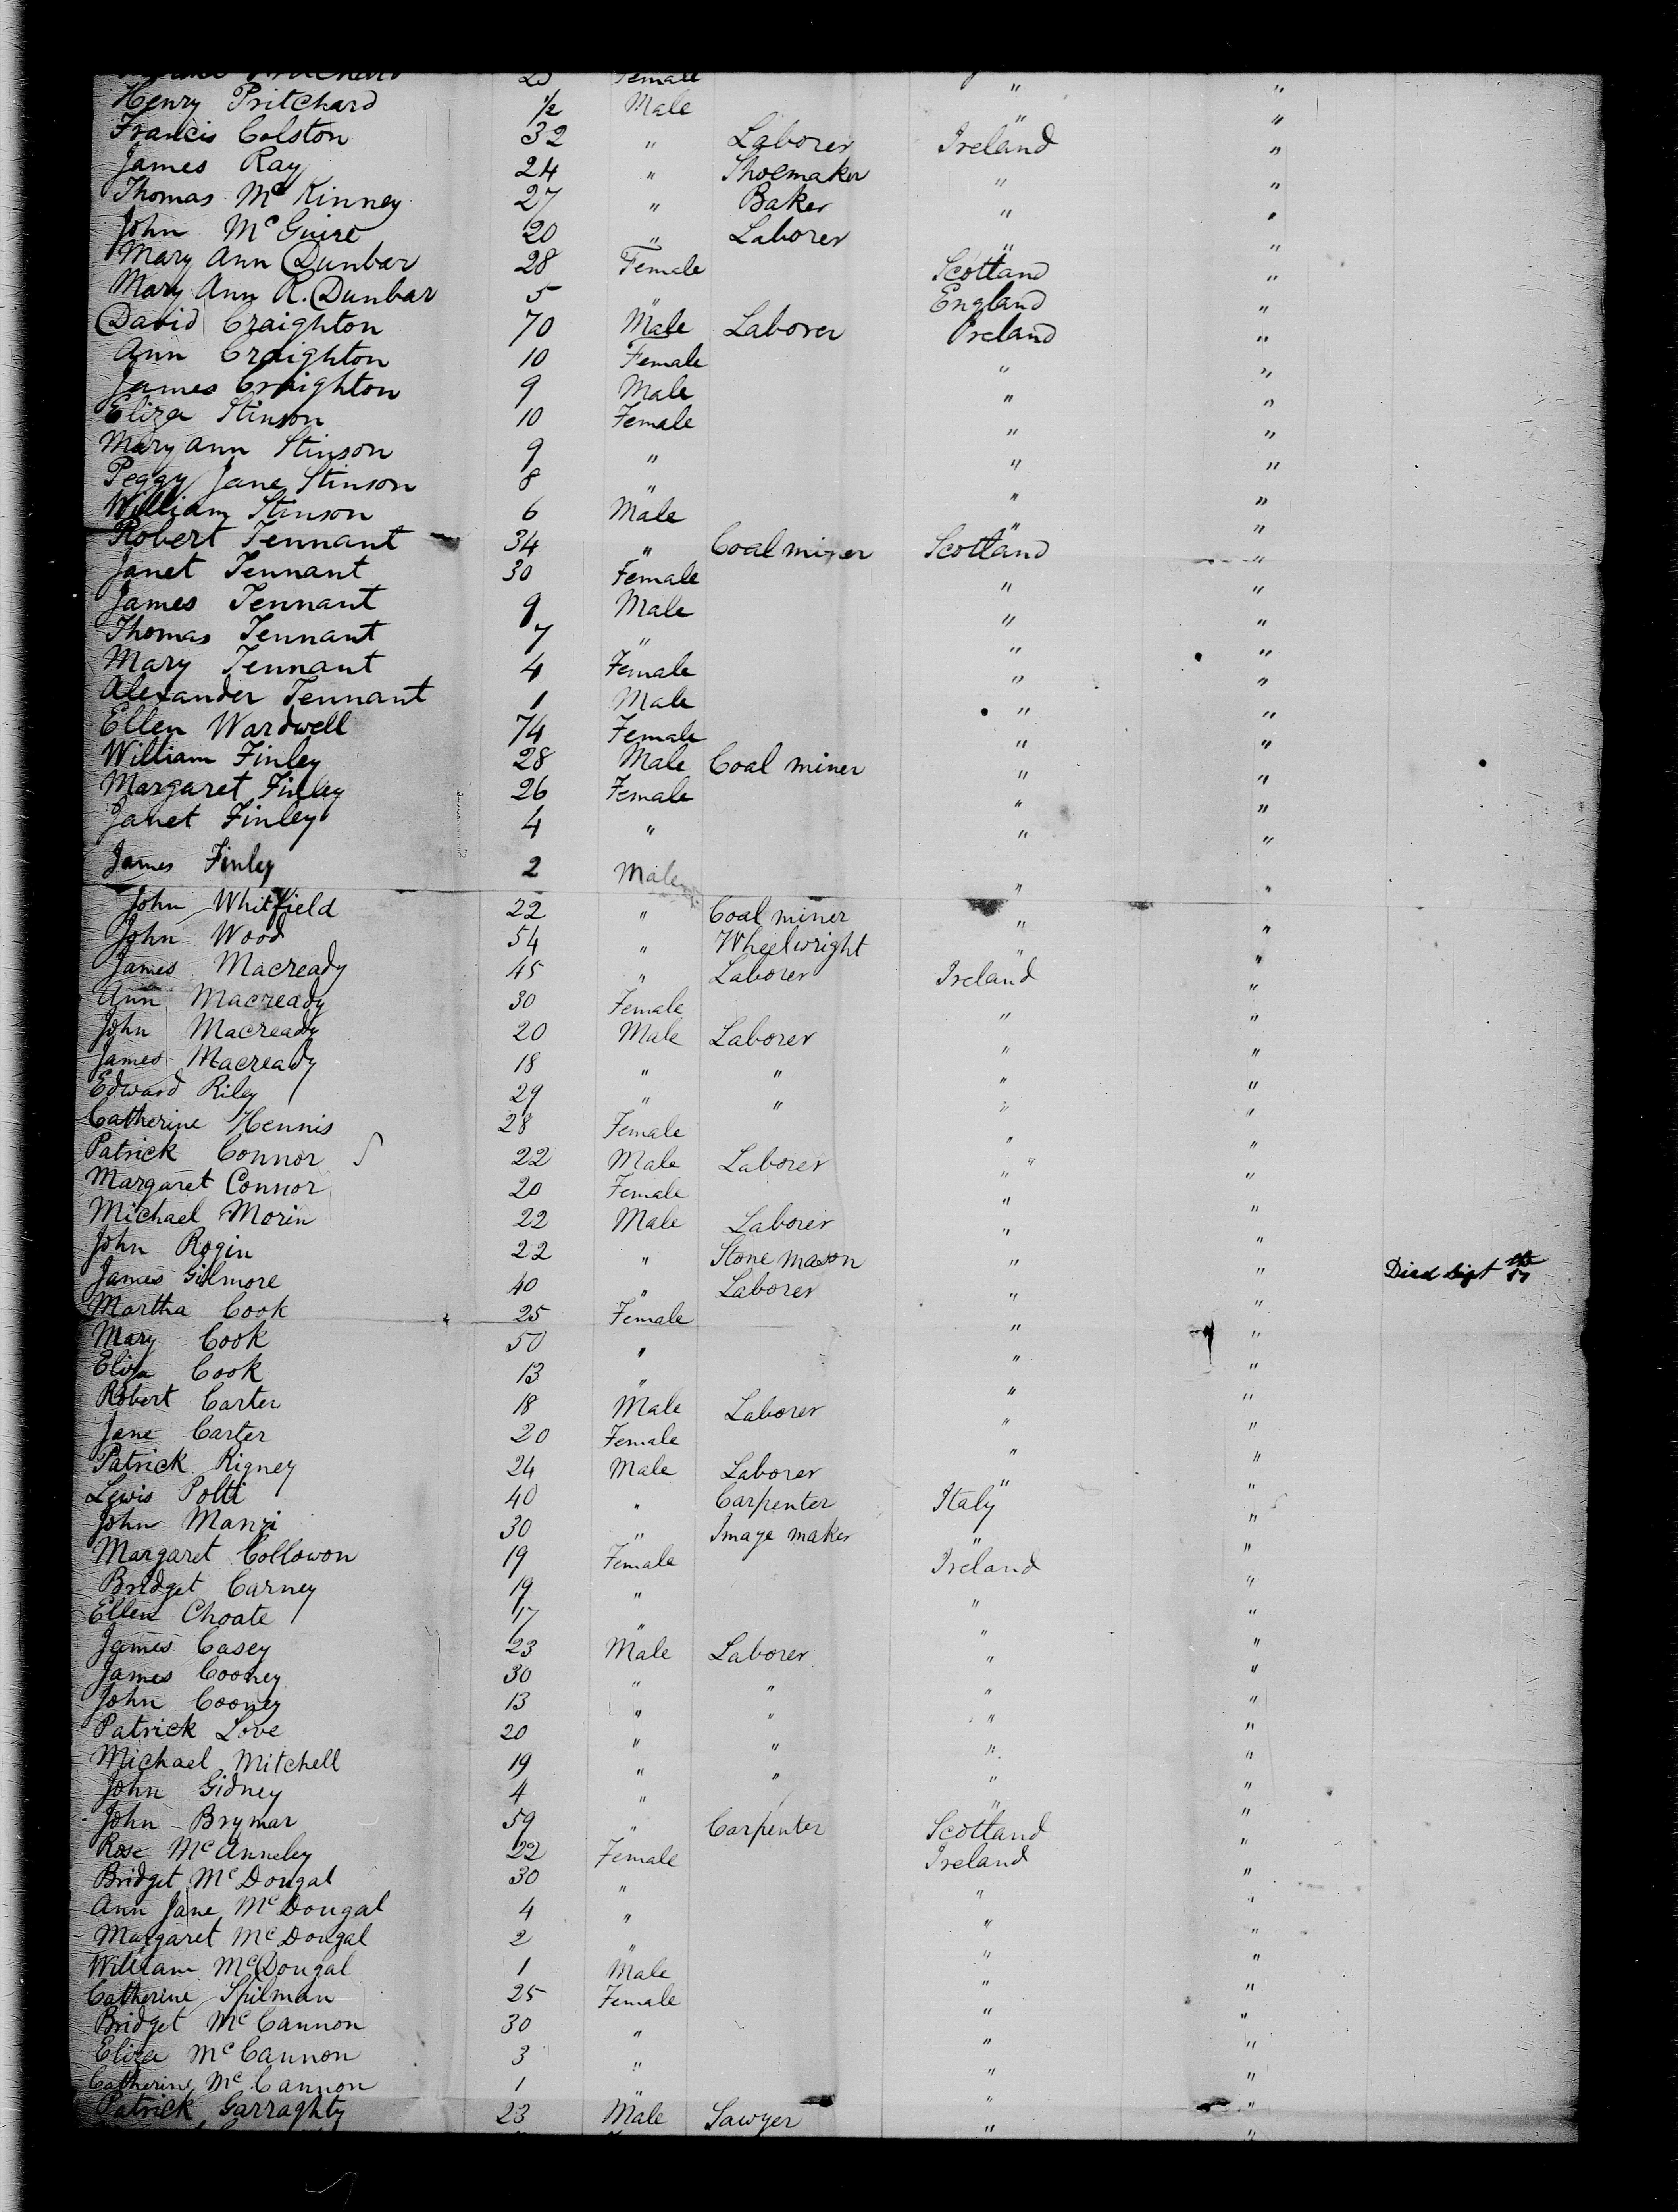 Pritchard 25 Female " "
Henry Pritchard 1/2 Male " "
Francis Colston 32 " Laborer Ireland "
James Ray 24 " Shoemaker " "
Thomas McKinney 27 " Baker " "
John McGuire 20 " Laborer " "
Mary Ann Dunbar 28 Female Scotland "
Mary Ann R. Dunbar 5 " England "
David Craighton 70 Male Laborer Ireland "
Ann Craighton 10 Female " "
James Craighton 9 Male " "
Eliza Stinson 10 Female " "
Mary Ann Stinson 9 " " "
Peggy Jane Stinson 8 " " "
William Stinson 6 Male " "
Robert Tennant 34 " Coal miner Scotland "
Janet Tennant 30 Female " "
James Tennant 9 Male " "
Thomas Tennant 7 " " "
Mary Tennant 4 Female " "
Alexander Tennant 1 Male " "
Ellen Wardwell 74 Female " "
William Finley 28 Male Coal miner " "
Margaret Finley 26 Female " "
Janet Finley 4 " " "
James Finley 2 Male " "
John Whitfield 22 " Coal miner " "
John Wood 54 " Wheelwright " "
James Macready 45 " Laborer Ireland "
Ann Macready 30 Female " "
John Macready 20 Male Laborer " "
James Macready 18 " " " "
Edward Riley 29 " " " "
Catherine Hennis 28 Female " "
Patrick Connor 22 Male Laborer " "
Margaret Connor 20 Female " "
Michael Morin 22 Male Laborer " "
John Rogin 22 " Stone mason " "
James Gilmore 40 " Laborer " " Died Sept 17
Martha Cook 25 Female " "
Mary Cook 50 " " "
Eliza Cook 13 " " "
Robert Carter 18 Male Laborer " "
Jane Carter 20 Female " "
Patrick Rigney 24 Male Laborer " "
Lewis Polti 40 " Carpenter Italy "
John Manzi 30 " Image maker " "
Margaret Collowon 19 Female Ireland "
Bridget Carney 19 " " "
Ellen Choate 17 " " "
James Casey 23 Male Laborer " "
James Cooney 30 " " " "
John Cooney 13 " " " "
Patrick Love 20 " " " "
Michael Mitchell 19 " " " "
John Gidney 4 " " "
John Brymar 59 " Carpenter Scotland "
Rose McAnneley 22 Female Ireland "
Bridget McDougal 30 " " "
Ann Jane McDougal 4 " " "
Margaret McDougal 2 " " "
William McDougal 1 Male " "
Catherine Spilman 25 Female " "
Bridget McCannon 30 " " "
Eliza McCannon 3 " " "
Catherine McCannon 1 " " "
Patrick Garraghty 23 Male Sawyer " "